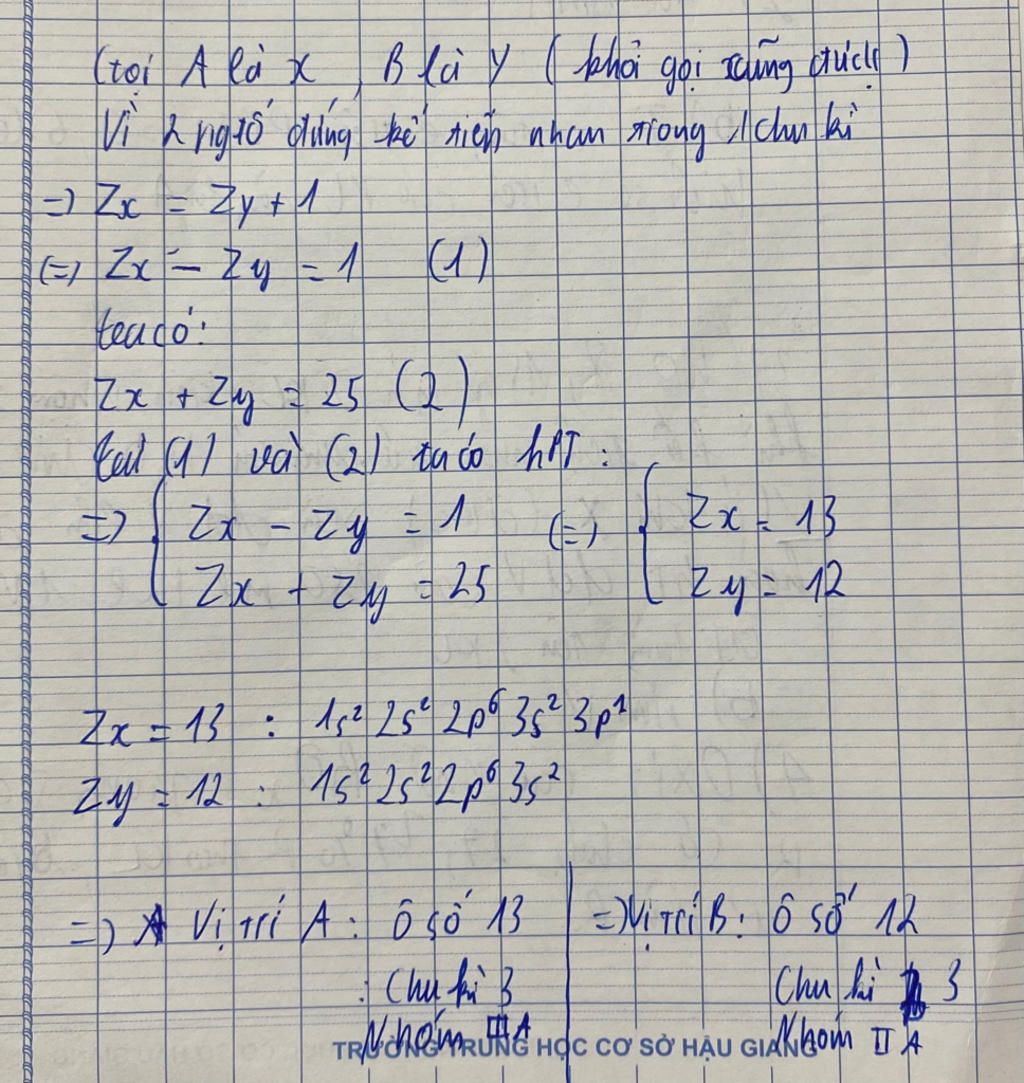 Gọi A là x, B là y (khỏi gọi cũng được)
Vì 2 ngtố đứng kế tiếp nhau trong 1 chu kì
=> Zx = Zy + 1
(=) Zx - Zy = 1 (1)
ta có:
Zx + Zy = 25 (2)
Từ (1) và (2) ta có hPT:
=> { Zx - Zy = 1 (=) { Zx = 13
Zx + Zy = 25 Zy = 12
Zx = 13 : 1s² 2s² 2p⁶ 3s² 3p¹
Zy = 12 : 1s² 2s² 2p⁶ 3s²
=> Vị trí A: Ô số 13 => Vị trí B: Ô số 12
: Chu kì 3 Chu kì 3
Nhóm IIIA Nhóm IIA
TRƯỜNG TRUNG HỌC CƠ SỞ HẬU GIANG